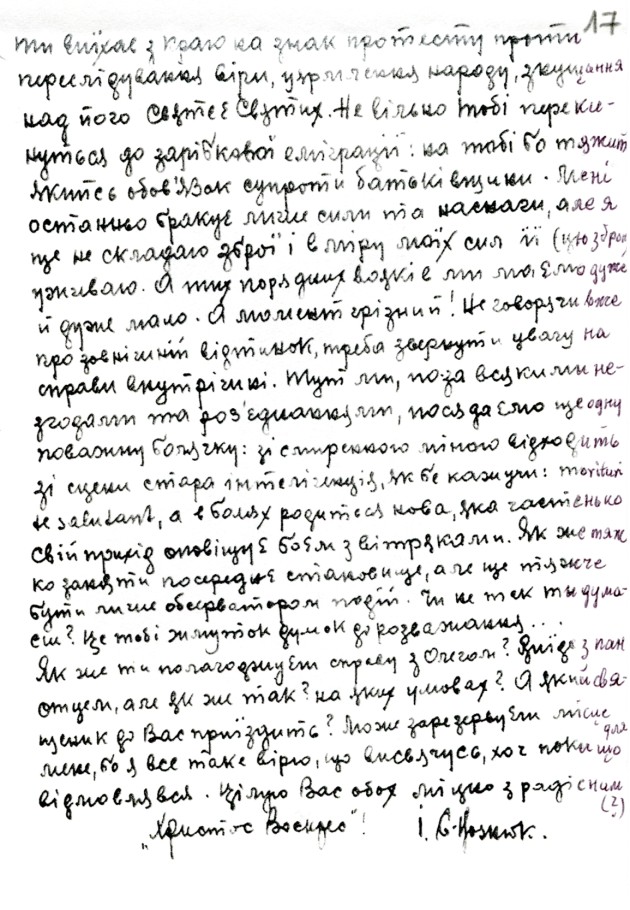 17
ти виїхав з краю на знак протесту проти
переслідування віри, ущемлення народу, знущання
над його Святеє Святих. Не вільно тобі переки-
нуться до зарібкової еміграції: на тобі бо тяжить
якийсь обов'язок супроти батьківщини. Мені
останньо бракує лише сили та наснаги, але я
ще не складаю зброї і в міру моїх сил її (цю зброю
уживаю. А тих порядних вояків ми маємо дуже
й дуже мало. А момент грізний! Не говорячи вже
про зовнішній відтинок, треба звернути увагу на
справи внутрішні. Тут ми, поза всякими не-
згодами та роз'єднаннями, посядаємо ще одну
поважну болячку: зі смиренною міною відходить
зі сцени стара інтелігенція, як бе кажучи: morituri
te salutant, а в болях родиться нова, яка частенько
свій прихід оповіщує боєм з вітряками. Як же тяж
ко заняти посереднє становище, але ще тяжче
бути лише обсерватором подій. Чи не так ти дума-
єш? Це тобі жмуток думок до розважання...
Як же ти полагоджуєш справу з Олегом? Виїде з пан
отцем, але як же так? на яких умовах? А який свя-
щеник до Вас приїздить? Може зарезервуєш місце
для
мене, бо я все таке вірю, що висвячусь, хоч поки що
відмовлявся. Цілую Вас обох міцно з радісним
(?)
„Христос Воскрес"! І.